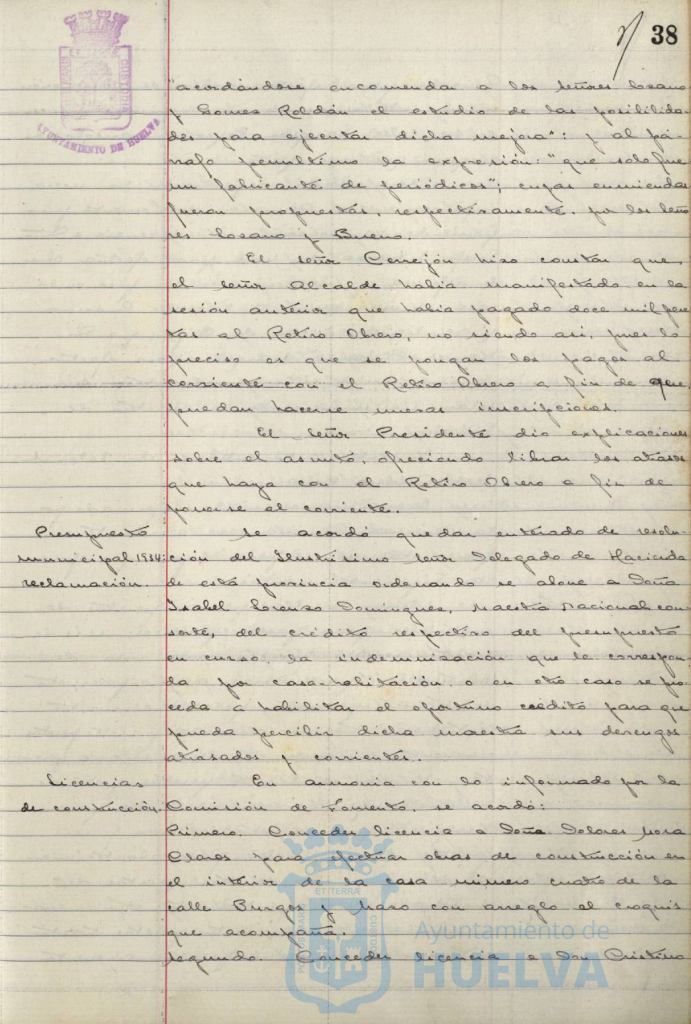 38
AYUNTAMIENTO DE HUELVA
"acordándose encomendar a los señores Lozano
y Gomez Roldán el estudio de las posibilida-
des para ejecutar dicha mejora"; y al pá-
rrafo penultimo la expresión: "que solo fue
un fabricante de periódicos"; cuyas enmiendas
fueron propuestas, respectivamente, por los seño-
res Lozano y Bueno.
El señor Cerrejón hizo constar que
el señor Alcalde habia manifestado en la
sesión anterior que habia pagado doce mil pese-
tas al Retiro Obrero, no siendo asi, pues lo
preciso es que se pongan los pagos al
corriente con el Retiro Obrero a fin de que
puedan hacerse nuevas inscripciones.
El señor Presidente dio explicaciones
sobre el asunto, ofreciendo librar los atrasos
que haya con el Retiro Obrero a fin de
ponerse al corriente.
Presupuesto
municipal 1934:
reclamación.
Se acordó quedar enterado de resolu-
ción del Ilustrisimo señor Delegado de Hacienda
de esta provincia ordenando se abone a Doña
Isabel Lorenzo Dominguez, Maestra Nacional con-
sorte, del crédito respectivo del presupuesto
en curso, la indemnización que le correspon-
da por casa-habitación, o en otro caso se pro-
ceda a habilitar el oportuno crédito para que
pueda percibir dicha maestra sus devengos
atrasados y corrientes.
Licencias
de construcción.
En armonia con lo informado por la
Comisión de Fomento, se acordó:
Primero. Conceder licencia a Doña Dolores Mora
Claros para efectuar obras de construcción en
el interior de la casa número cuatro de la
calle Burgos y Mazo con arreglo al croquis
que acompaña.
Segundo. Conceder licencia a Don Cristino
Ayuntamiento de
HUELVA